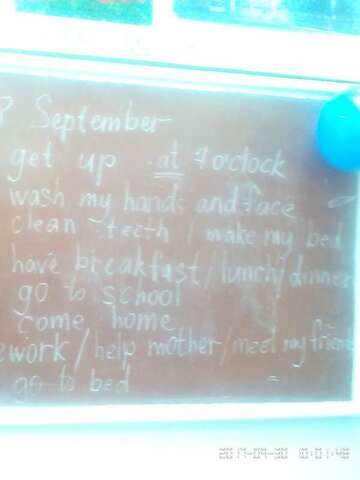 September
get up at 7 o'clock
wash my hands and face
clean teeth / make my bed
have breakfast / lunch / dinner
go to school
come home
ework / help mother / meet my friends
go to bed
10:01:48